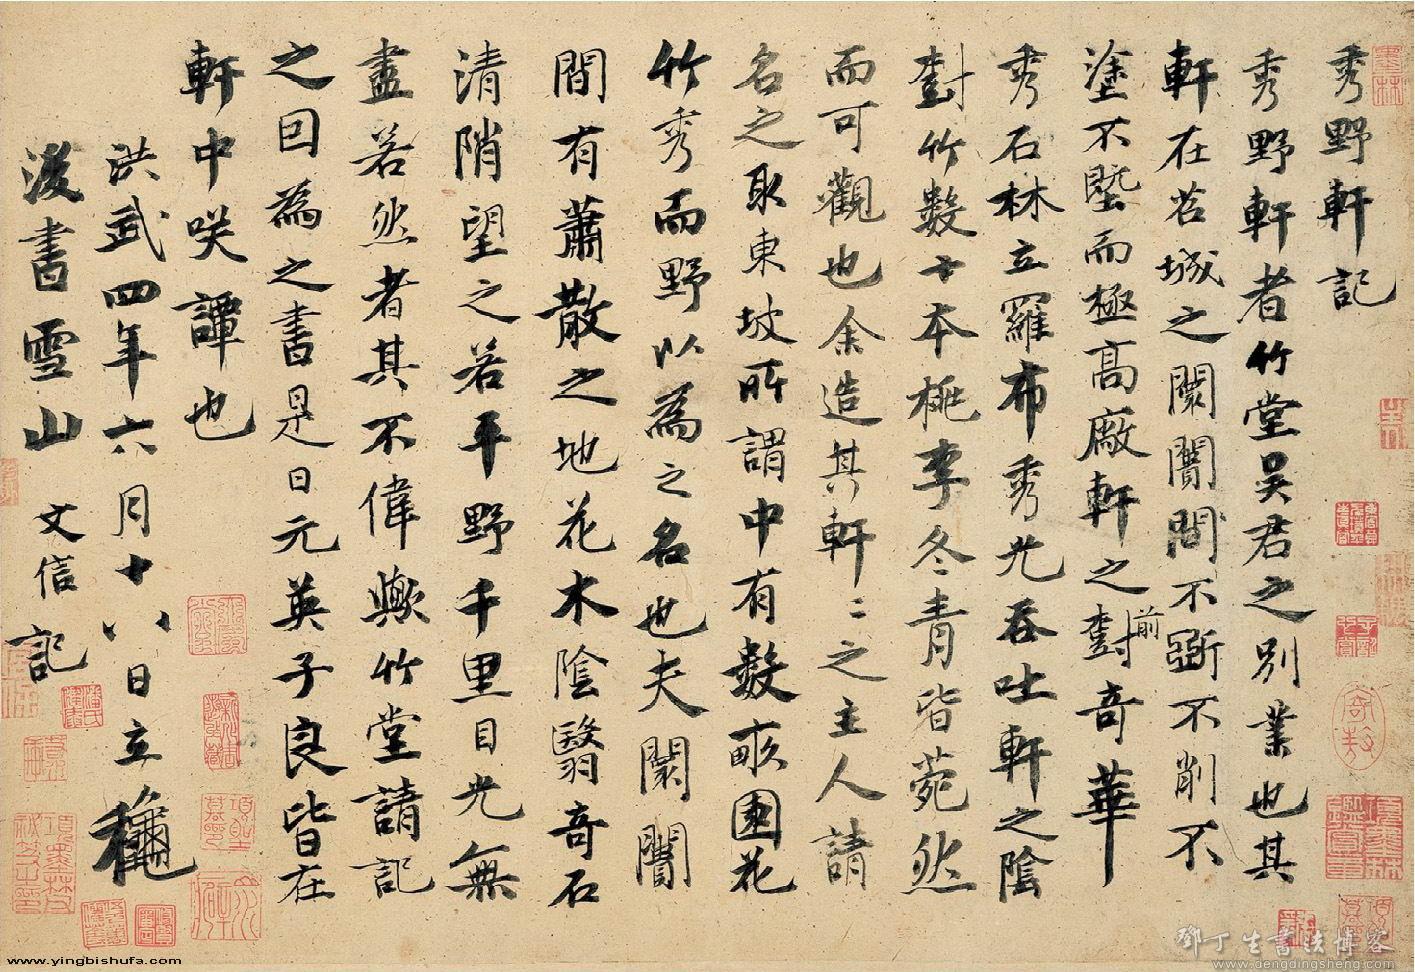 秀野軒記
秀野軒者竹堂吴君之別業也其
軒在苕城之闤闠間不斵不削不
塗不塈而極高厰軒之前對奇華
秀石林立羅布秀光吞吐軒之陰
對竹數十本桃李冬青皆菀然
而可觀也余造其軒〻之主人請
名之取東坡所謂中有數畝園花
竹秀而野以為之名也夫闤闠
間有蕭散之地花木陰翳奇石
清隋望之若平野千里目光無
盡若然者其不偉歟竹堂請記
之因為之書是日元英子良皆在
軒中咲譚也
洪武四年六月十八日立
後書雪山 文信 記
鄧丁生書法博客
www.dengdingsheng.com
www.yingbishufa.com